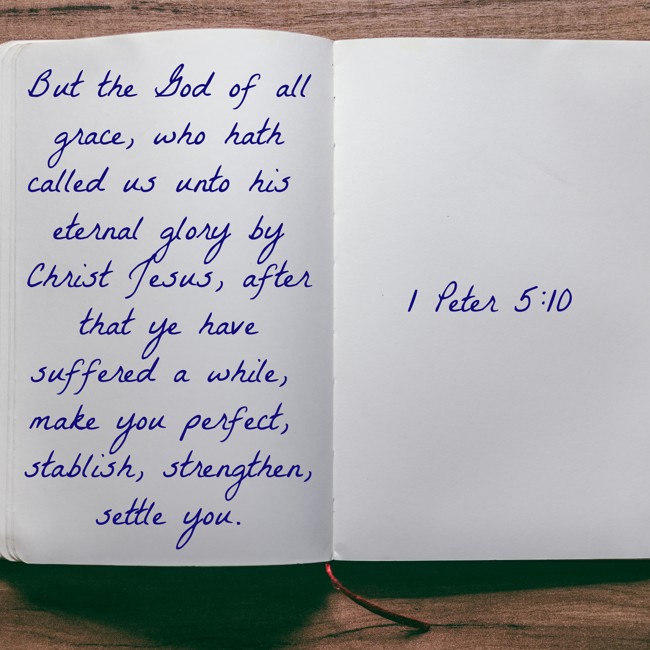 But the God of all
grace, who hath
called us unto his
eternal glory by
Christ Jesus, after
that ye have
suffered a while,
make you perfect,
stablish, strengthen,
settle you.
1 Peter 5:10